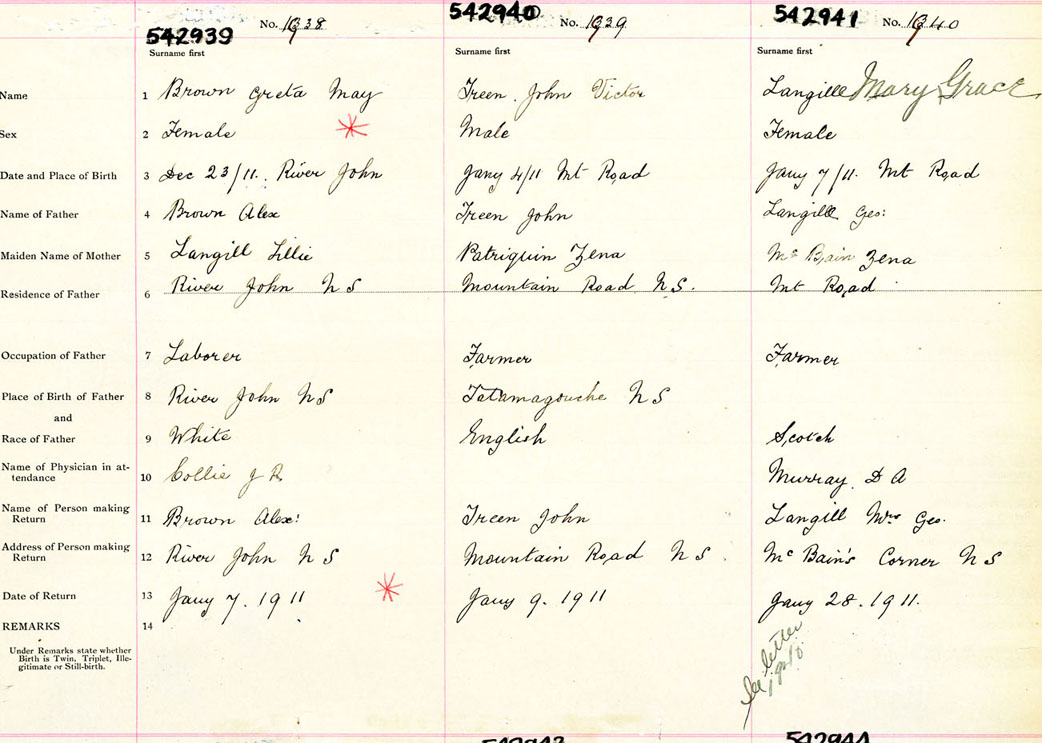 542939 No. 1938 542940 No. 1939 542941 No. 1940
Surname first Surname first Surname first
Name 1 Brown Greta May Treen. John Victor Langille Mary Grace
Sex 2 Female Male Female
Date and Place of Birth 3 Dec 23/11. River John Jany 4/11 Mt Road Jany 7/11. Mt Road
Name of Father 4 Brown Alex Treen John Langille Geo:
Maiden Name of Mother 5 Langill Lillie Patriquin Zena Mc Bain Zena
Residence of Father 6 River John N S Mountain Road N.S. Mt Road
Occupation of Father 7 Laborer Farmer Farmer
Place of Birth of Father 8 River John NS Tatamagouche N S
and
Race of Father 9 White English Scotch
Name of Physician in at-
tendance 10 Collie J R. Murray. D A
Name of Person making
Return 11 Brown Alex: Treen John Langill Mrs Geo.
Address of Person making
Return 12 River John N S Mountain Road N S. Mc Bain's Corner N S
Date of Return 13 Jany 7. 1911 Jany 9. 1911 Jany 28. 1911.
REMARKS 14
Under Remarks state whether
Birth is Twin, Triplet, Ille-
gitimate or Still-birth.
letter
542944